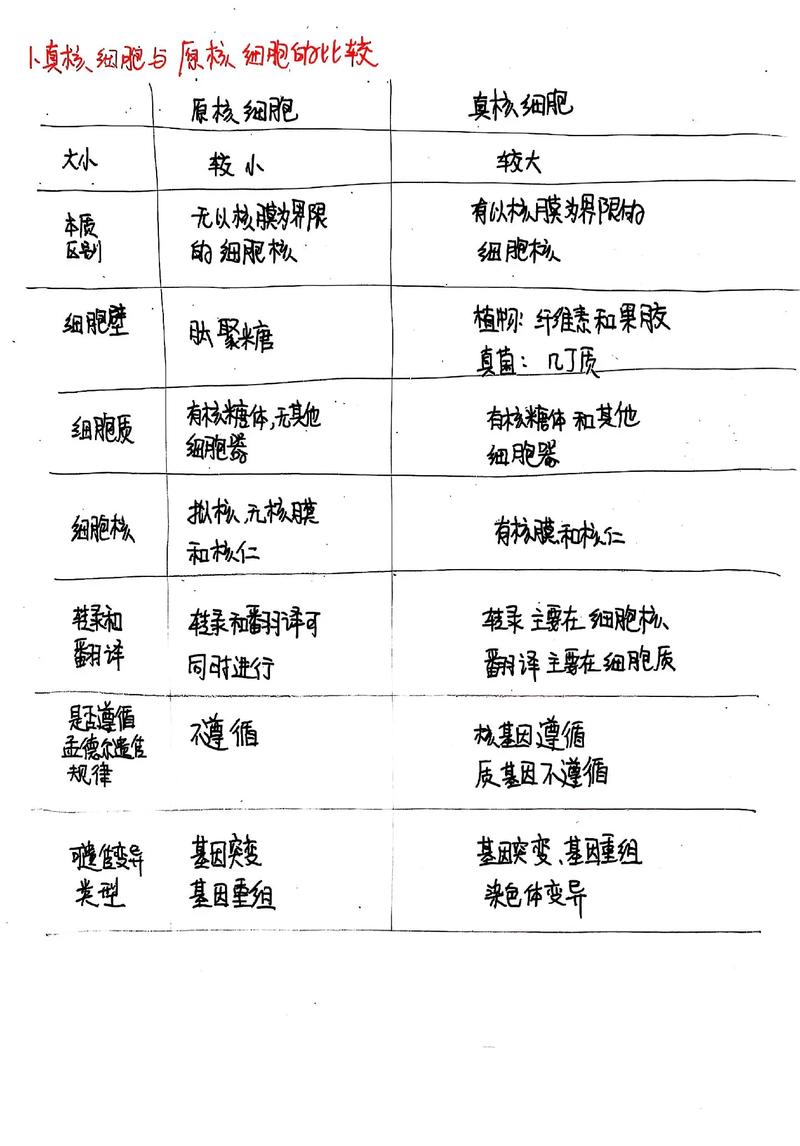 1.真核细胞与原核细胞的比较
原核细胞 真核细胞
大小 较小 较大
本质 无以核膜为界限 有以核膜为界限的
区别 的细胞核 细胞核
细胞壁 肽聚糖 植物：纤维素和果胶
真菌：几丁质
细胞质 有核糖体,无其他 有核糖体和其他
细胞器 细胞器
细胞核 拟核、无核膜 有核膜和核仁
和核仁
转录和 转录和翻译可 转录主要在细胞核、
翻译 同时进行 翻译主要在细胞质
是否遵循 不遵循 核基因遵循
孟德尔遗传 质基因不遵循
规律
可遗传变异 基因突变 基因突变、基因重组
类型 基因重组 染色体变异